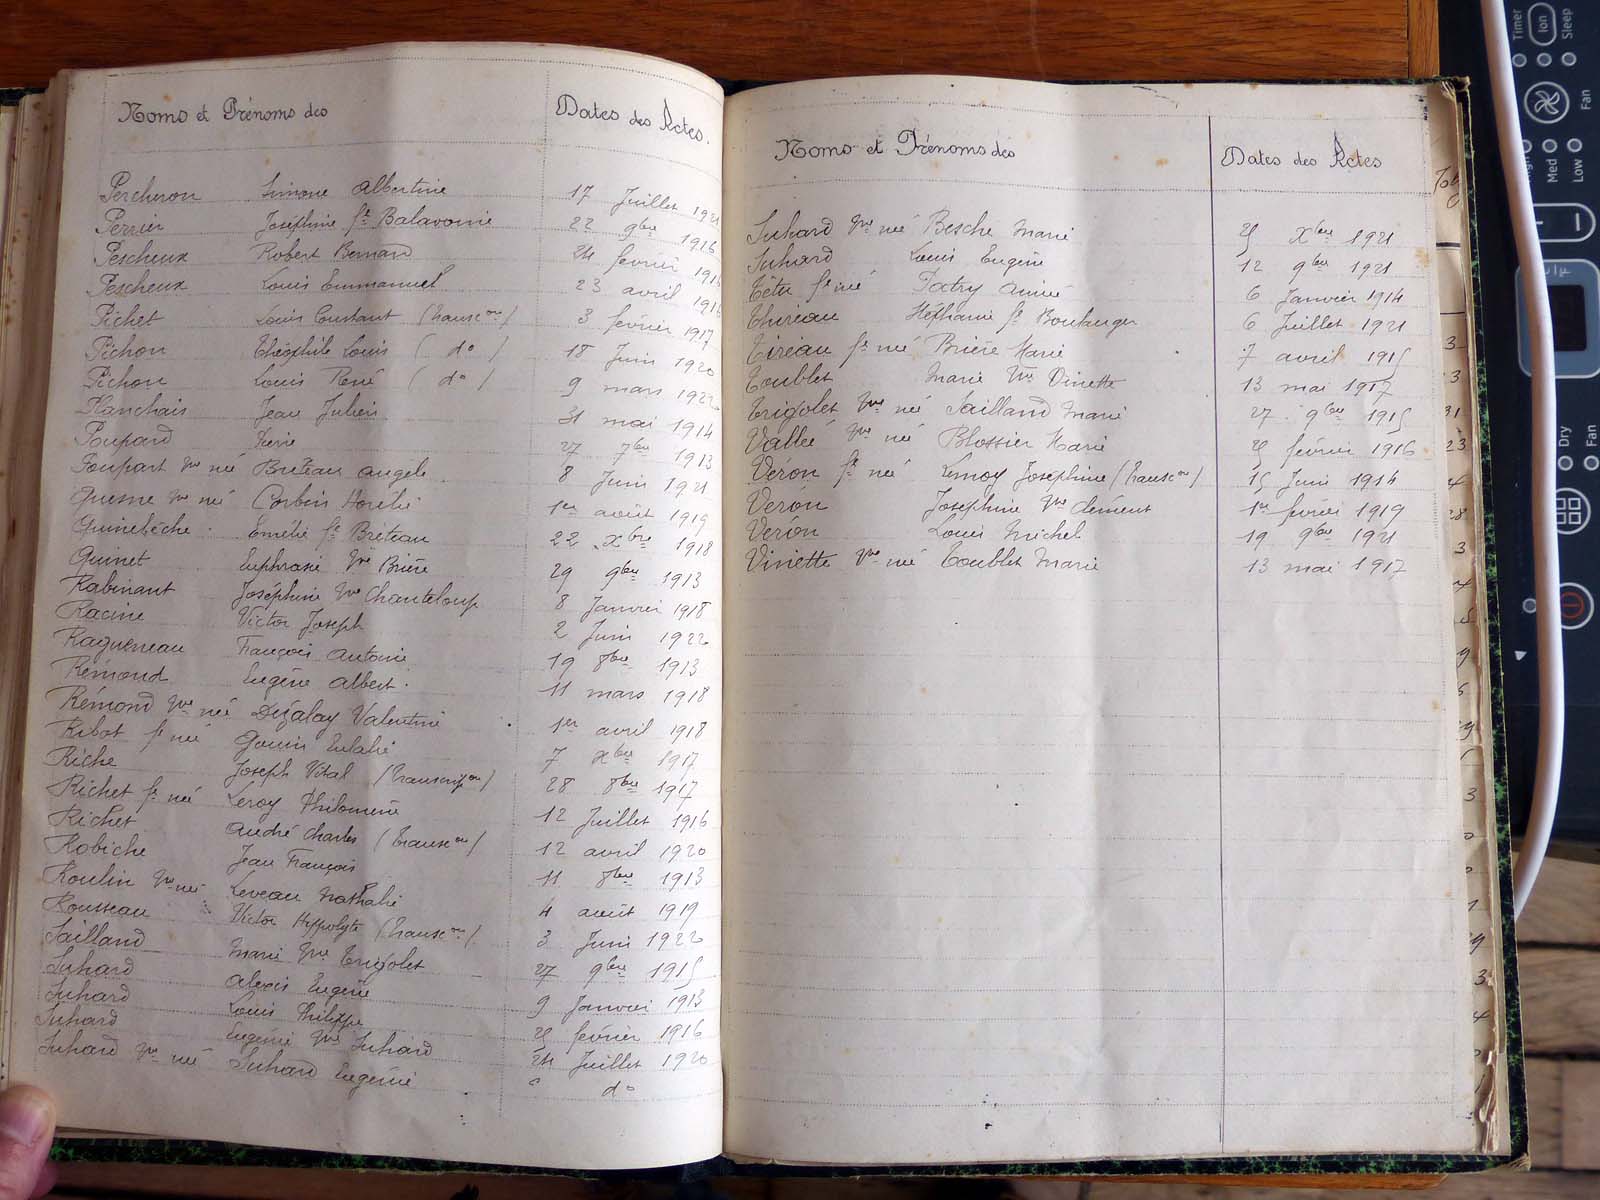 Noms et Prénoms des Dates des Actes.
Percheron Simone Albertine 17 Juillet 1921
Perrier Joséphine fe Balavoine 22 9bre 1916
Pescheux Robert Bernard 24 février 1916
Pescheux Louis Emmanuel 23 avril 1916
Pichet Louis Constant (transcon) 3 février 1917
Pichon Théophile Louis (do) 18 Juin 1920
Pichon Louis René (do) 9 mars 1922
Planchais Jean Julien 31 mai 1914
Poupard 27 7bre 1913
Poupart Vve née Bréteau Angèle 8 Juin 1921
Quesne Vve née Corbin 1er août 1919
Quinebèche Emélie fe Bréteau 22 Xbre 1918
Quinet Euphrasie Vve Brière 29 9bre 1913
Rabinant Joséphine Vve Chanteloup 8 Janvier 1918
Racine Victor Joseph 2 Juin 1922
Ragueneau François Antoine 19 8bre 1913
Rémond Eugène Albert. 11 mars 1918
Rémond Vve née Dézalay Valentine 1er avril 1918
Ribot fe née Gouin Eulalie 7 Xbre 1917
Riche Joseph Vital (transcripon) 28 8bre 1917
Richet fe née Leroy Philomène 12 Juillet 1916
Richet André Charles (transcon) 12 avril 1920
Robiche Jean François 11 8bre 1913
Roulin Vve née Leveau Nathalie 4 août 1919
Rousseau Victor Hyppolyte (transcon) 3 Juin 1922
Sailland Marie Vve Trigolet 27 9bre 1915
Suhard Alexis Eugène 9 Janvier 1913
Suhard Louis Philippe 25 février 1916
Suhard Eugénie Vve Suhard 24 Juillet 1920
Suhard Vve née Suhard Eugénie do
Noms et Prénoms des Dates des Actes
Suhard Vve née Besche Marie 25 Xbre 1921
Suhard Louis Eugène 12 9bre 1921
Tétu fe née Patry Aimée 6 Janvier 1914
Thureau Stéphanie fe Boulanger 6 Juillet 1921
Tireau fe née Brière Marie 7 avril 1915
Toublet Marie Vve Viniette 13 mai 1917
Trigolet Vve née Sailland Marie 27 9bre 1915
Vallée Vve née Blossier Marie 25 février 1916
Véron fe née Lemoy Joséphine (transcon) 15 Juin 1914
Véron Joséphine Vve Clément 1er février 1919
Véron Louis Michel 19 9bre 1921
Viniette Vve née Toublet Marie 13 mai 1917
Timer
Ion
Sleep
Fan
Med
Low
Dry
Fan